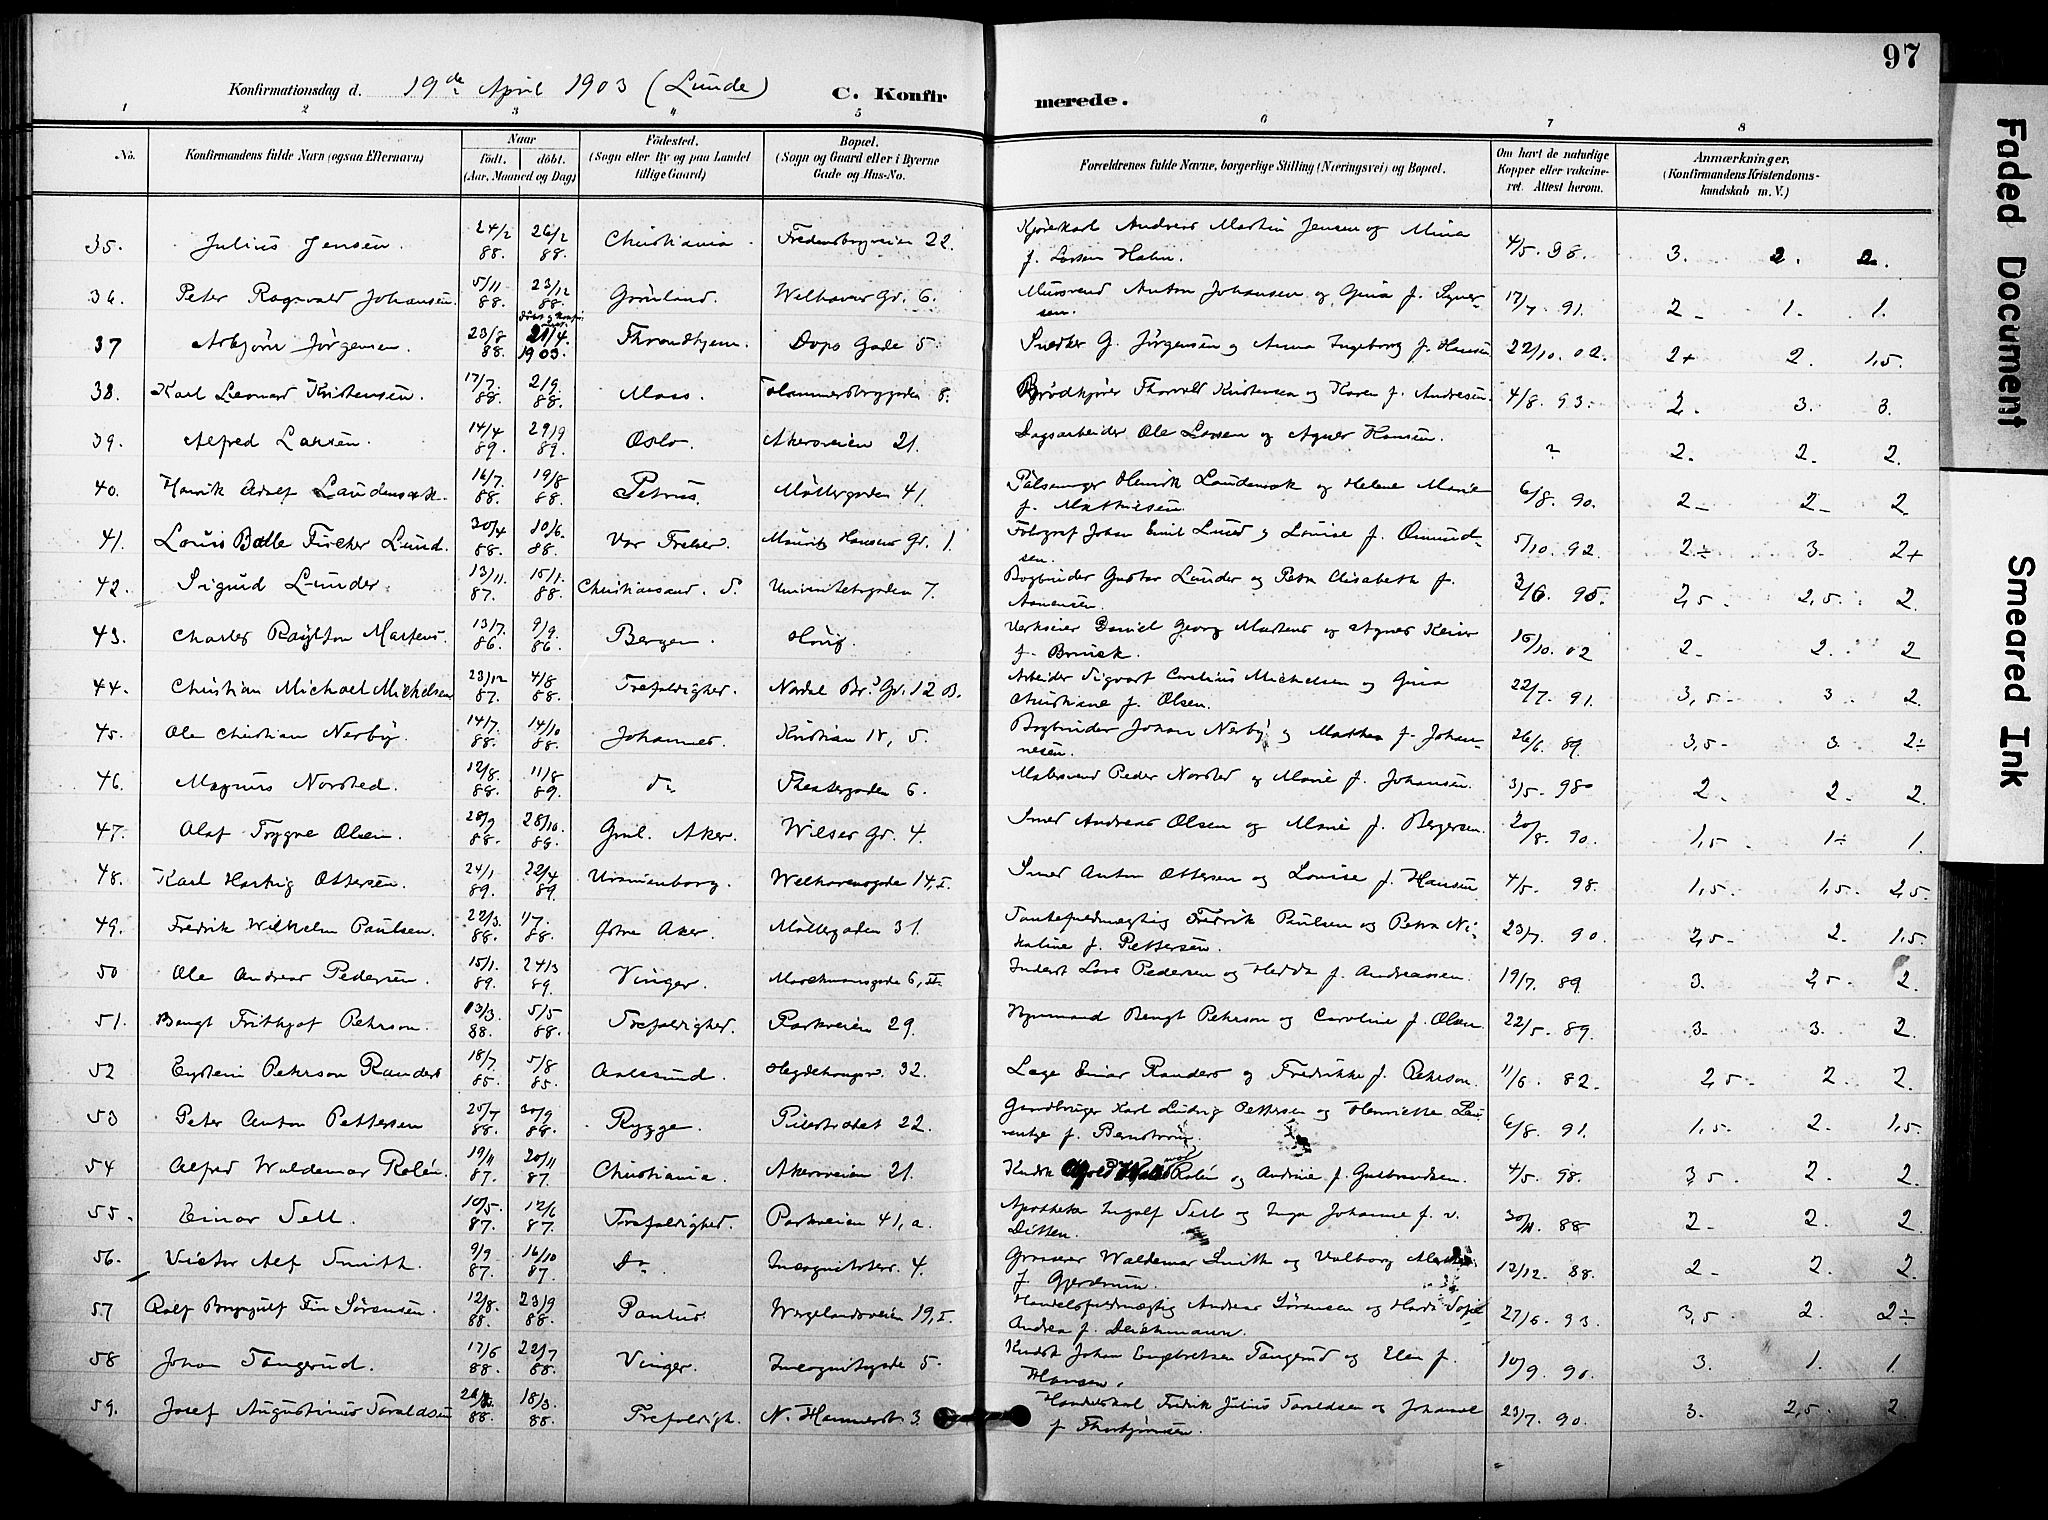 97
Konfirmationsdag d. 19de April 1903 (Lunde) C. Konfirmerede.
1 2 3 4 5 6 7 8
No. Konfirmandens fulde Navn (ogsaa Efternavn) Naar födt. döbt. (Aar, Maaned og Dag) Födested. (Sogn eller By og paa Landet tillige Gaard) Bopæl. (Sogn og Gaard eller i Byerne Gade og Hus-No. Forældrenes fulde Navne, borgerlige Stilling (Næringsvei) og Bopæl. Om havt de naturlige Kopper eller vakcineret. Attest herom. Anmærkninger. (Konfirmandens Kristendomskundskab m. V.)
35. Julius Jensen. 24/2 88. 26/2 88. Christiania. Fredensborgveien 22. Kjørekarl Andreas Martin Jensen og Mina f. Larsen Holm. 4/5. 98. 3. 2. 2.
36. Peter Ragnvald Johansen. 5/11 88. 23/12 88. Grønland. Welhavens Gd. 6. Mursvend Anton Johansen og Gina f. Syversen. 17/7 91. 2 1. 1.
37 Asbjørn Jørgensen. 23/8 88. 21/4 1903. Throndhjem. Dops Gade 5. Snedker G. Jörgensen og Anna Ingeborg f. Hansen 22/10. 02. 2+ 2. 1,5.
38. Karl Leonard Kristensen. 17/7. 88. 2/9. 88. Moss. Hammersborggaden 8. Brødkjører Thorvald Kristensen og Karen f. Andresen. 4/8. 93. 2. 3. 3.
39. Alfred Larsen. 14/4 89. 29/9 89. Oslo. Akersveien 21. Dagsarbeider Ole Larsen og Agnes Hansen. ? 2. 2. 2.
40. Henrik Adolf Laudensack. 16/7. 88. 19/8 88. Petrus. Möllergaden 41. Pölsemager Henrik Laudensak og Helene Marie f. Mathiesen. 6/8. 90. 2 2 2
41. Louis Balle Fischer Lund. 30/4 88. 10/6. 88. Vor Frelser. Maurits Hansens Gd. 1. Fotograf Johan Emil Lund og Lovise f. Omundsen. 5/10. 92. 2÷ 3. 2+
42. Sigurd Lunder 13/11. 87. 15/1. 88. Christiansand. S. Universitetsgaden 7. Bogbinder Gustav Lunder og Petra Elisabeth f. Aanensen. 3/6. 95. 2,5. 2,5. 2.
43. Charles Martens. 13/7. 86. 9/9. 86. Bergen. Høvig. Værkseier Daniel Georg Martens og Agnes f. 15/10. 02 2. 2. 2
44. Christian Michael Michelsen 23/12 87. 4/8 88. Trefoldighed. Nordal Br.s Gd. 12 B. Arbeider Sigvart Cornelius Michelsen og Gina Christiane f. Olsen. 22/7. 91. 3,5 3 2.
45. Ole Christian Nerby. 14/7. 88. 14/10 88. Johannes. Kristian IV, 5. Bogbinder Johan Nerby og Mathea f. Johannesen. 26/6. 89. 3,5 3. 2÷
46. Magnus Norsted. 12/8. 88. 11/8 89. do Theatergaden 6. Malersvend Peder Norsted og Marie f. Johansen. 3/5. 98. 2 2. 2.
47. Olaf Trygve Olsen. 28/9 88. 28/10. 88. Grnl. Aker. Wilses Gd. 4. Smed Andreas Olsen og Marie f. Bergersen. 20/8. 90. 1,5 1÷ 1.
48. Karl Hartvig Ottersen. 24/1 89. 22/4 89. Uranienborg. Welhavensgade 14, I. Smed Anton Ottersen og Lovise f. Hansen 4/5. 98. 1,5. 1,5. 2,5
49. Fredrik Wilhelm Paulsen. 22/3. 88. 1/7. 88. Østre Aker. Möllergaden 31. Fredrik Paulsen og Petra Nikoline f. Pettersen. 23/7. 90. 2,5 2. 1,5.
50 Ole Andreas Pedersen. 15/1. 89. 24/3 89. Vinger. 6, II. Inderst Lars Pedersen og Hedda f. Andreassen. 19/7. 89. 3. 2,5. 2.
51. Bengt Frithjof Pehrson. 13/3. 88. 5/5 88. Trefoldighed. Parkveien 29. Bengt Pehrson og Caroline f. Olsen. 22/5. 89. 3. 3. 2
52 Eystein Pehrson Randers 18/7 85. 5/8 85. Aalesund. Hegdehaugsv. 32. Læge Einar Randers og Fredrikke f. Pehrson. 11/6. 82. 2,5 2. 2.
53 Peter Anton Pettersen 25/7 88. 30/9. 88. Rygge. Pilestrædet 22. Gaardbruger Karl Ludvig Pettersen og Henriette Laurentze f. Berntsen. 6/8. 91. 1,5. 2. 1,5.
54 Alfred Waldemar Rolén. 19/11 87. 20/11 87. Christiania. Akersveien 21. Kudsk Rolén og Andrine f. Gulbrandsen. 4/5. 98. 3,5 2. 2.
55. Einar Sell. 10/5. 87. 12/6 87. Trefoldighed. Parkveien 41, a. Apotheker Ingolf Sell og Inga Johanne f. v. Ditten. 30/11. 88 2. 2. 2.
56. Victor Alf Smith. 9/9 87. 16/10 87. Do. Incognitoter. 4. Grosserer Waldemar Smith og Valborg f. Gjerdrum. 12/12. 88. 2 2. 2.
57 Rolf Brynjulf Fin Sørensen. 12/8. 88. 23/9 88. Paulus. Wergelandsveien 19, I. Handelsfuldmægtig Andreas Sørensen og Sofie Andrea f. Deichmann. 27/6. 93. 3,5 2. 2÷
58 Johan Tangerud. 17/6 88. 22/7 88. Vinger. Incognitogade 5. Kudsk Johan Engebretsen Tangerud og Elen f. Hansen. 10/9. 90. 3. 1. 1.
59. Josef Augustinus Taraldsen 88. 18/3. 88. Trefoldigh. N. Hammersb. 3. Handelskarl Fredrik Julius Taraldsen og Johanne f. Thorbjørnsen. 23/7. 90. 3. 2,5. 2.
Faded Document
Smeared Ink